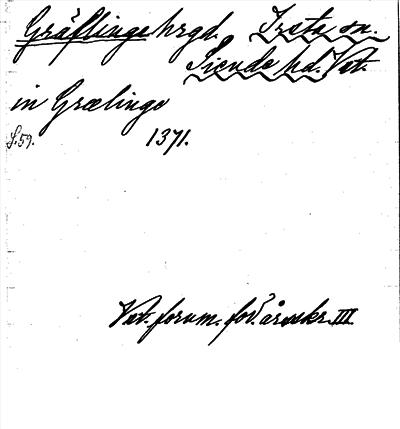 Gräflinge hrgd. Irsta sn.
Siende hd. Vstm.
in Grælinge
S. 59. 1371.
Vst. fornm. för. årsskr. III